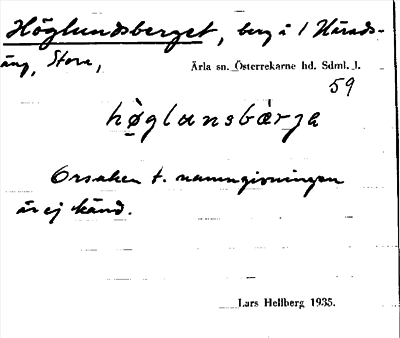 Höglundsberget, berg å 1 Härads-
äng, Stora,
Ärla sn. Österrekarne hd. Sdml. l.
59
hö̀glunsbàrja
Orsaken t. namngivningen
är ej känd.
Lars Hellberg 1935.